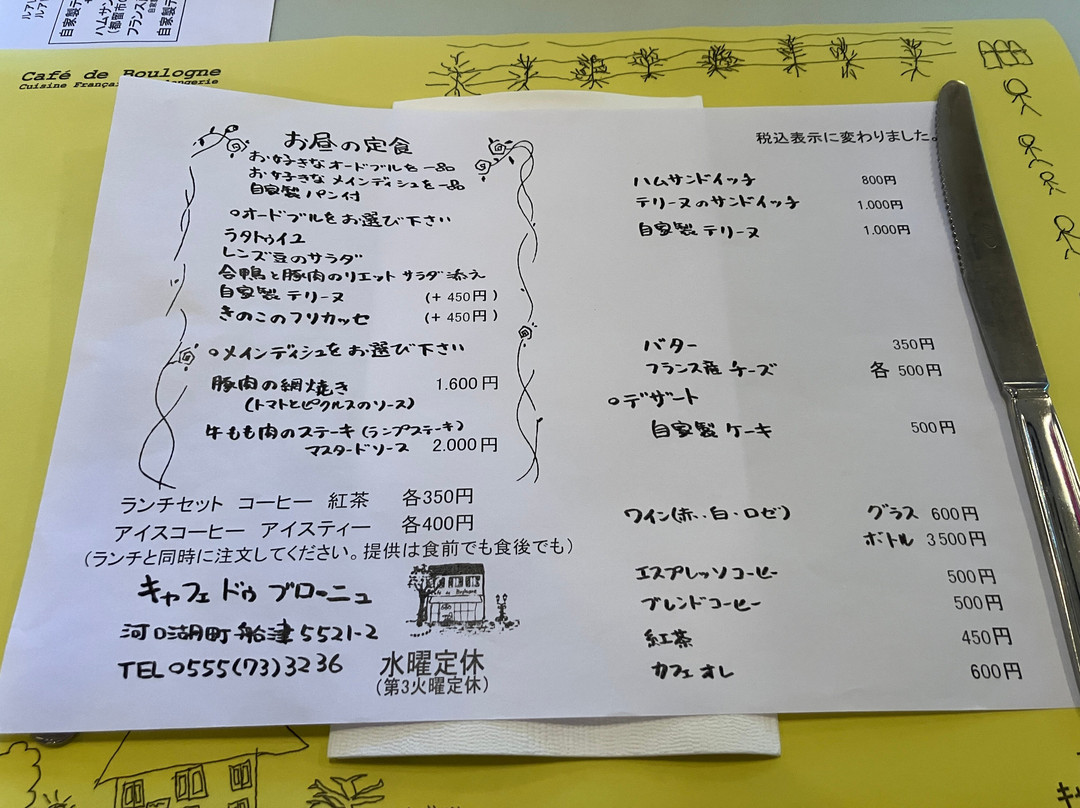 Café de Boulogne
お昼の定食
お好きなオードブルを一品
お好きなメインディシュを一品
自家製パン付
○オードブルをお選び下さい
ラタトゥイユ
レンズ豆のサラダ
合鴨と豚肉のリエット サラダ添え
自家製テリーヌ (+ 450円)
きのこのフリカッセ (+ 450円)
○メインディシュをお選び下さい
豚肉の網焼き 1.600円
(トマトとピクルスのソース)
牛もも肉のステーキ(ランプステーキ)
マスタードソース 2.000円
ランチセット コーヒー 紅茶 各350円
アイスコーヒー アイスティー 各400円
(ランチと同時に注文してください。提供は食前でも食後でも)
キャフェ ドゥ ブローニュ
河口湖町船津5521-2
TEL 0555(73)3236
水曜定休
(第3火曜定休)
税込表示に変わりました。
ハムサンドイッチ 800円
テリーヌのサンドイッチ 1.000円
自家製テリーヌ 1.000円
バター 350円
フランス産チーズ 各500円
○デザート
自家製ケーキ 500円
ワイン(赤・白・ロゼ) グラス 600円
ボトル 3500円
エスプレッソコーヒー 500円
ブレンドコーヒー 500円
紅茶 450円
カフェオレ 600円